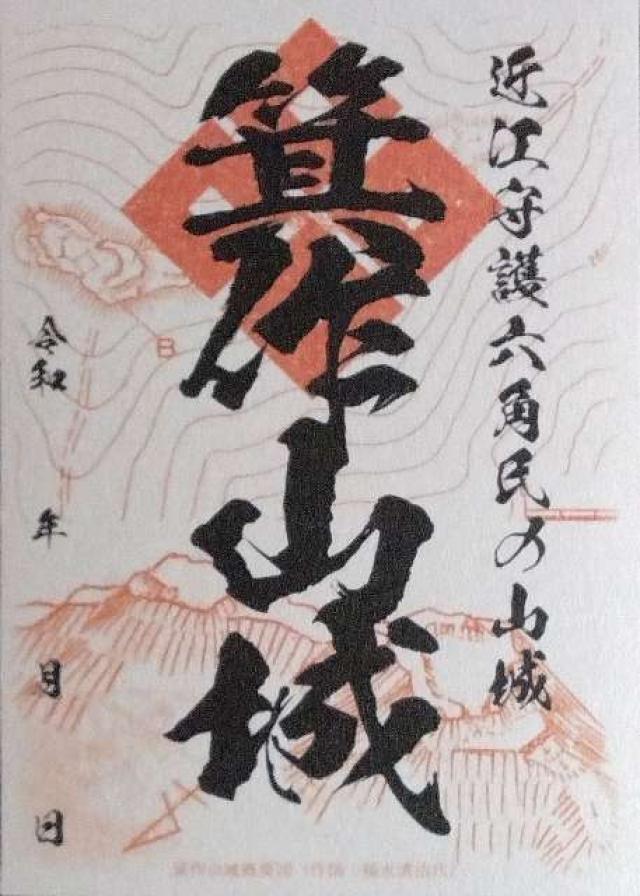 近江守護六角氏の山城
箕作山城
令和 年 月 日
B